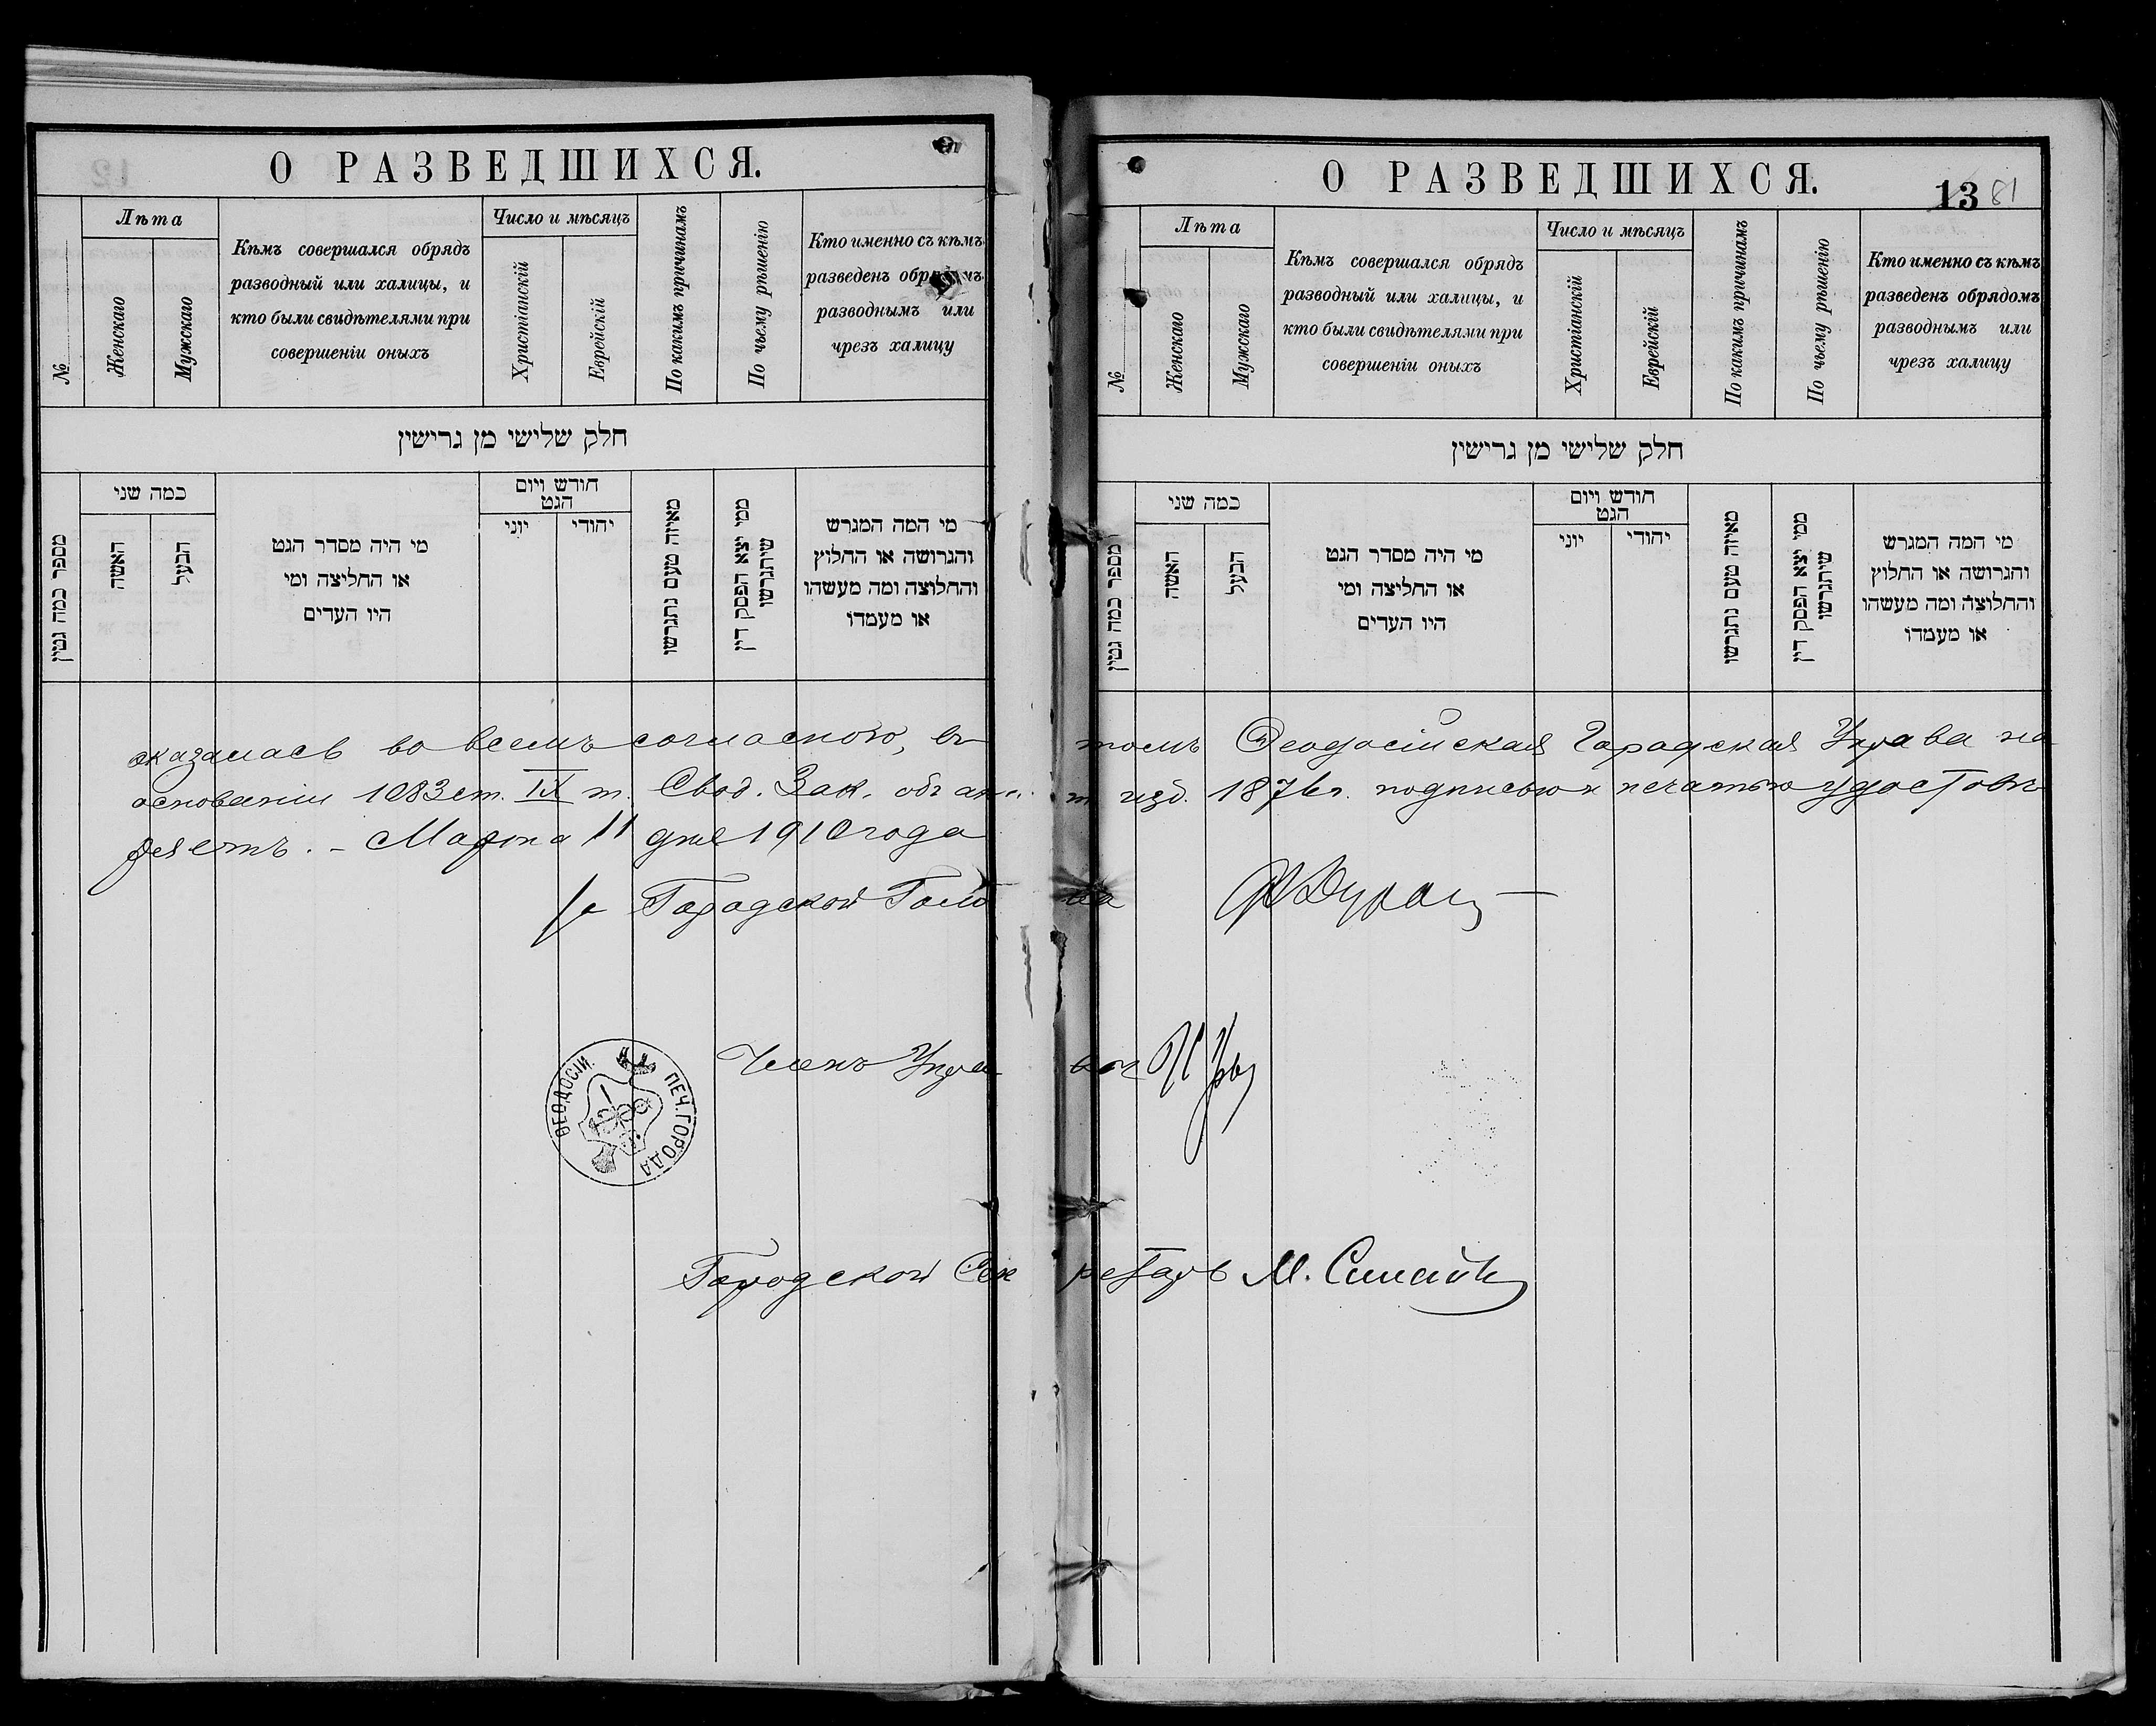 О РАЗВЕДШИХСЯ.
№
Лѣта
Женскаго
Мужскаго
Кѣмъ совершался обрядъ
разводный или халицы, и
кто были свидѣтелями при
совершеніи оныхъ
Число и мѣсяцъ
Христіанскій
Еврейскій
По какимъ причинамъ
По чьему рѣшенію
Кто именно съ кѣмъ
разведенъ
разводнымъ или
чрезъ халицу
חלק שלישי מן גרישין
מספר כמה גטין
כמה שני
האשה
הבעל
מי היה מסדר הגט
או החליצה ומי
היו העדים
חודש ויום
הגט
יוני
יהודי
מאיזה טעם נתגרשו
ממי יצא הפסק דין
שיתגרשו
מי המה המגרש
והגרושה או החלוץ
והחלוצה ומה מעשהו
או מעמדו
О РАЗВЕДШИХСЯ.
13 81
№
Лѣта
Женскаго
Мужскаго
Кѣмъ совершался обрядъ
разводный или халицы, и
кто были свидѣтелями при
совершеніи оныхъ
Число и мѣсяцъ
Христіанскій
Еврейскій
По какимъ причинамъ
По чьему рѣшенію
Кто именно съ кѣмъ
разведенъ обрядомъ
разводнымъ или
чрезъ халицу
חלק שלישי מן גרישין
מספר כמה גטין
כמה שני
האשה
הבעל
מי היה מסדר הגט
או החליצה ומי
היו העדים
חודש ויום
הגט
יוני
יהודי
מאיזה טעם נתגרשו
ממי יצא הפסק דין
שיתגרשו
מי המה המגרש
והגרושה או החלוץ
והחלוצה ומה מעשהו
או מעמדו
оказалась во всемъ согласною, въ томъ Ѳеодосійская Городская Управа на
основаніи 1083 ст. IX т. Свод. Зак. изд. 1876 г. подписью и печатью удостовѣ
ряетъ. - Марта 11 дня 1910 года
Городской Голова
Членъ Управы
ПЕЧ. ГОРОДА ѲЕОДОСІИ
Городской Секретарь М.